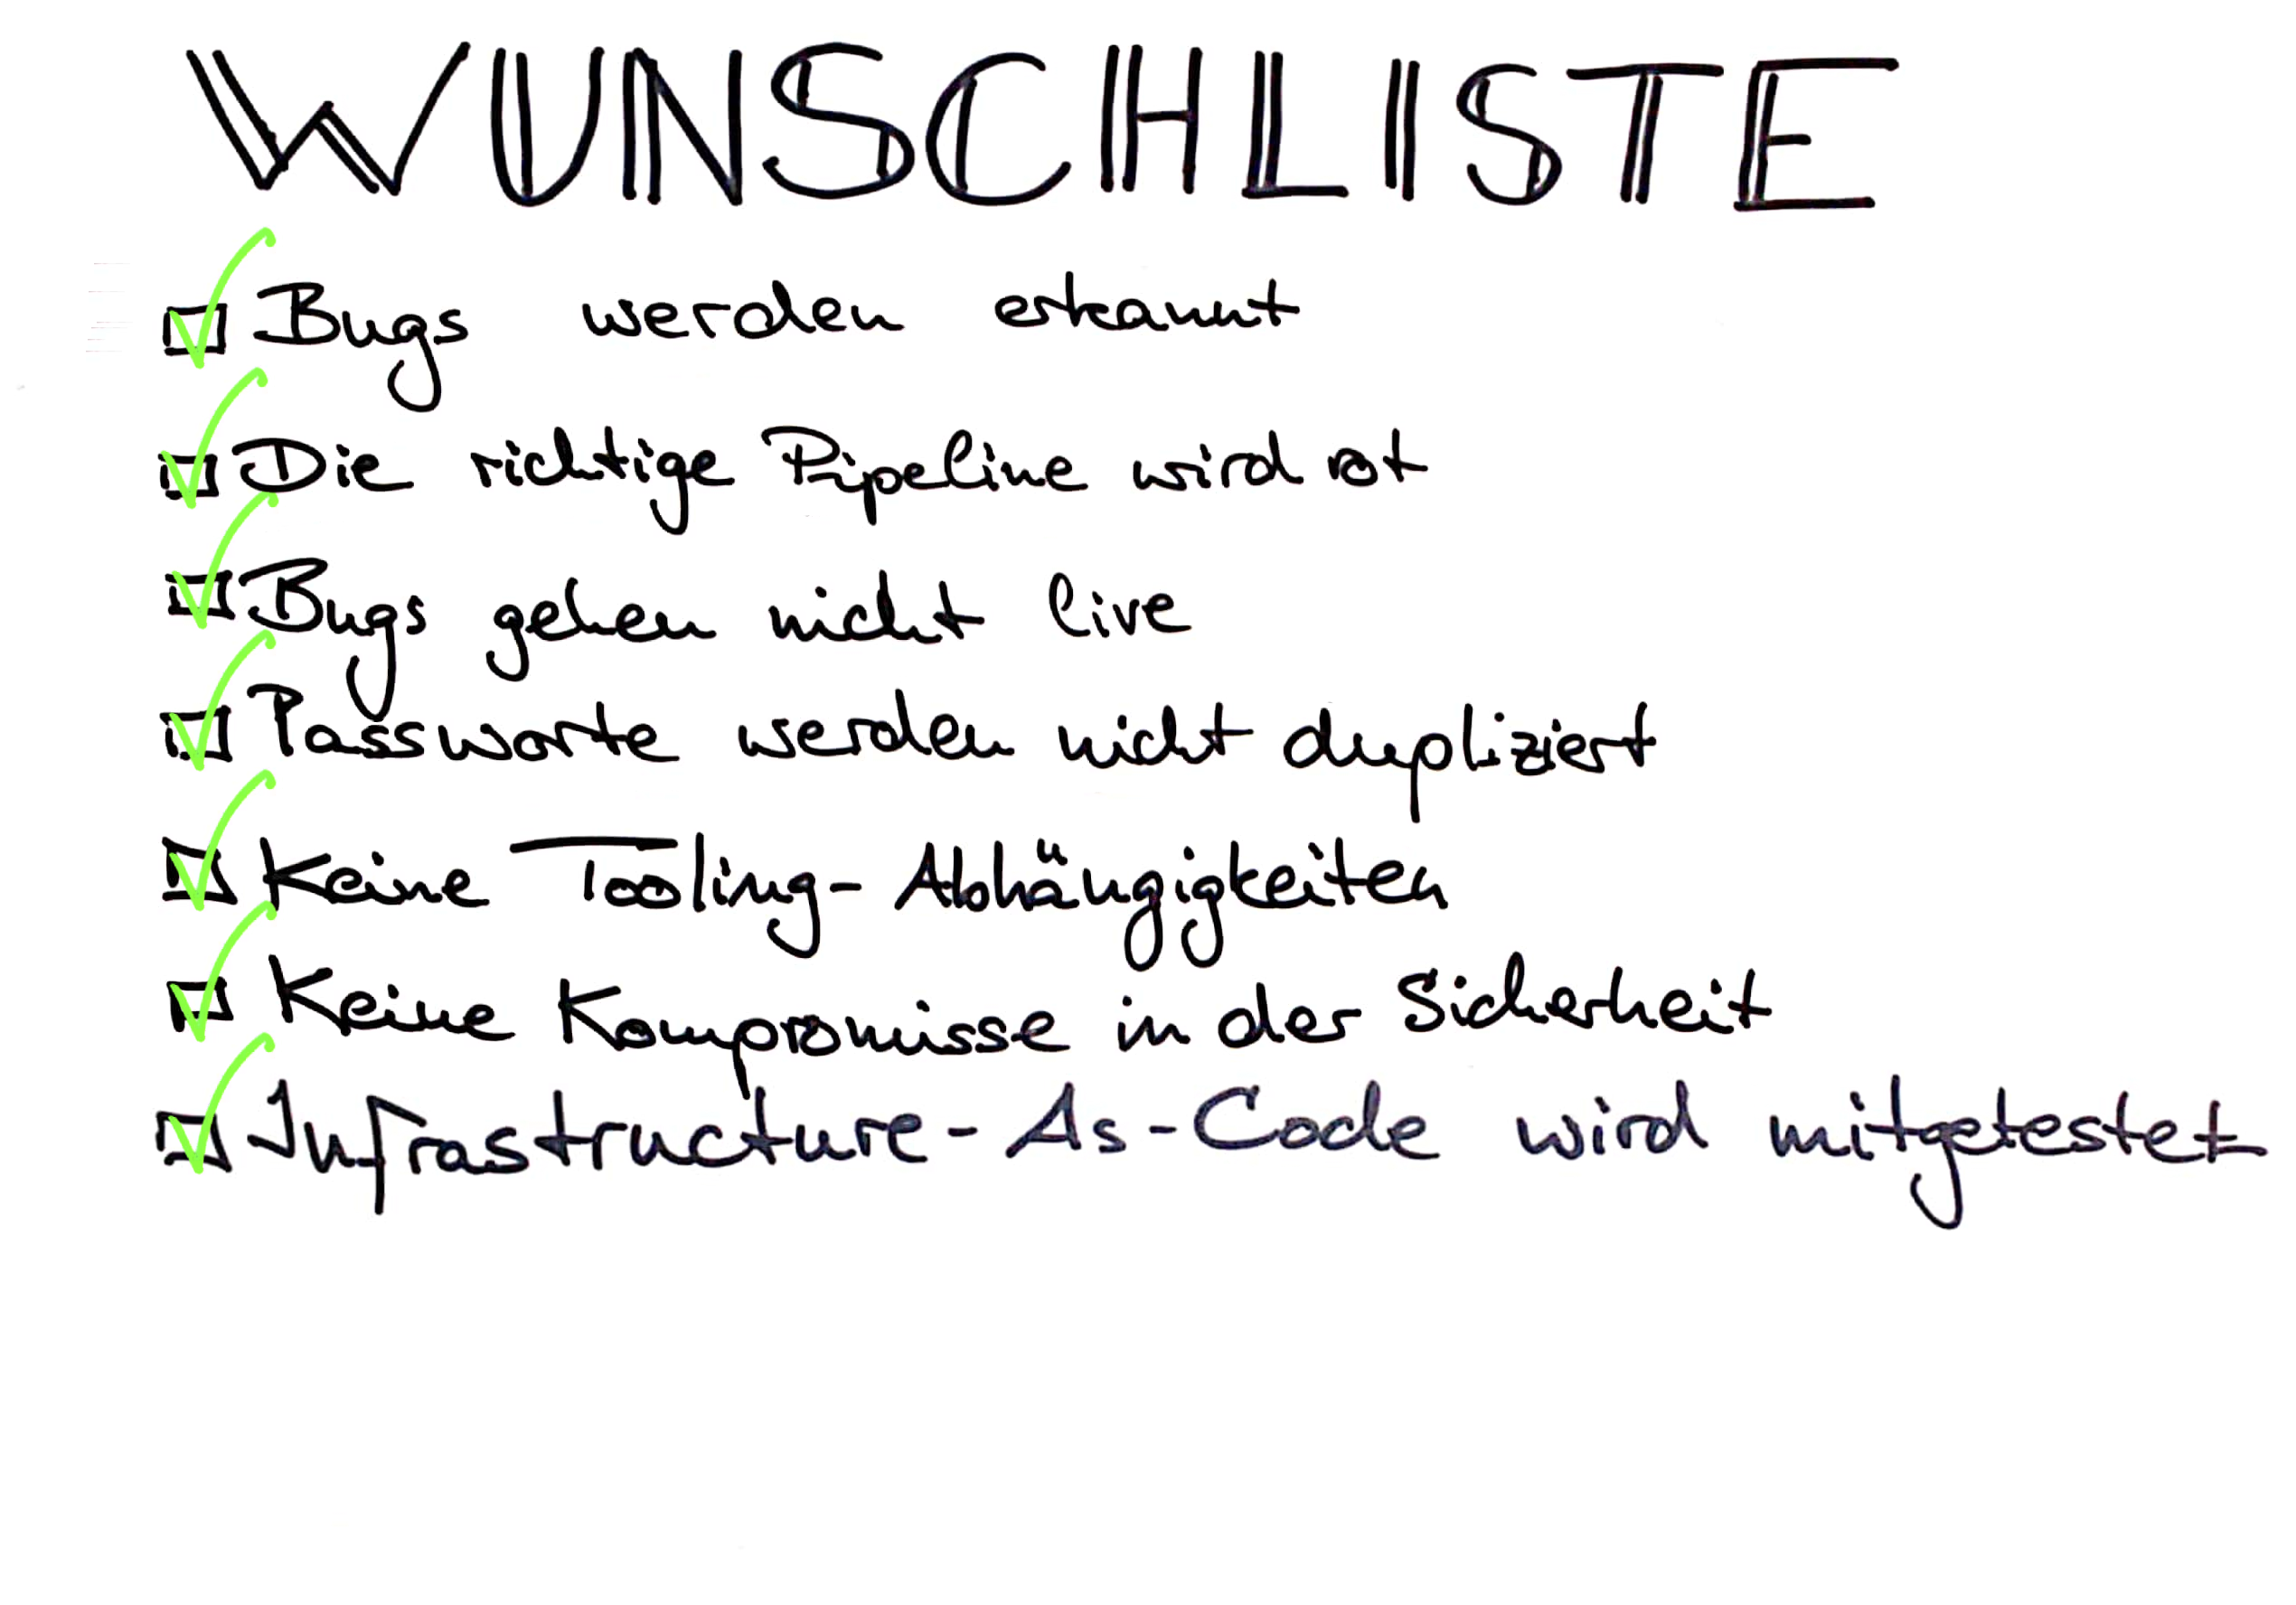 WUNSCHLISTE
Bugs werden erkannt
Die richtige Pipeline wird rot
Bugs gehen nicht live
Passworte werden nicht dupliziert
Keine Tooling-Abhängigkeiten
Keine Kompromisse in der Sicherheit
Infrastructure-As-Code wird mitgetestet